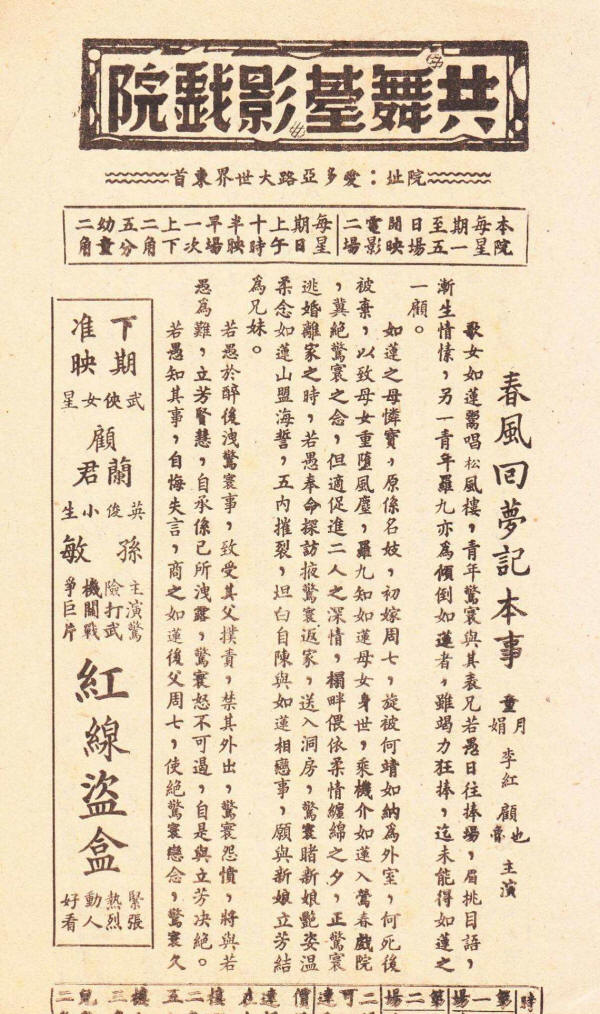 共舞臺影戲院
院址：愛多亞路大世界東首
本院每星期一至五日場開映電影二場
每星期日上午十時半映早場一次上下二角五分幼童二角
春風回夢記本事 童月娟 李紅 顧也魯 主演
歌女如蓮鬻唱松風樓，青年驚寰與其表兄若愚日往捧場，眉挑目語，
漸生情愫，另一青年羅九亦為傾倒如蓮者，雖竭力狂捧，迄未能得如蓮之
一顧。
如蓮之母憐寶，原係名妓，初嫁周七，旋被何靖如納為外室，何死後
被棄，以致母女重墮風塵，羅九知如蓮母女身世，乘機介如蓮入鶯春戲院
，冀絕驚寰之念，但適促進二人之深情，榻畔偎依柔情纏綿之夕，正驚寰
逃婚離家之時，若愚奉命探訪掖驚寰返家，送入洞房，驚寰睹新娘艷姿温
柔念如蓮山盟海誓，五內摧裂，坦白自陳與如蓮相戀事，願與新娘立芳結
為兄妹。
若愚於醉後洩驚寰事，致受其父撲責，禁其外出，驚寰怨憤，將與若
愚為難，立芳賢慧，自承係已所洩露，驚寰怒不可遏，自是與立芳決絕。
若愚知其事，自悔失言，商之如蓮後父周七，使絕驚寰戀念，驚寰久
下期准映
武俠女星
顧蘭君
英俊小生
孫敏
主演驚險打武機關戰爭巨片
紅線盜盒
緊張熱烈動人好看